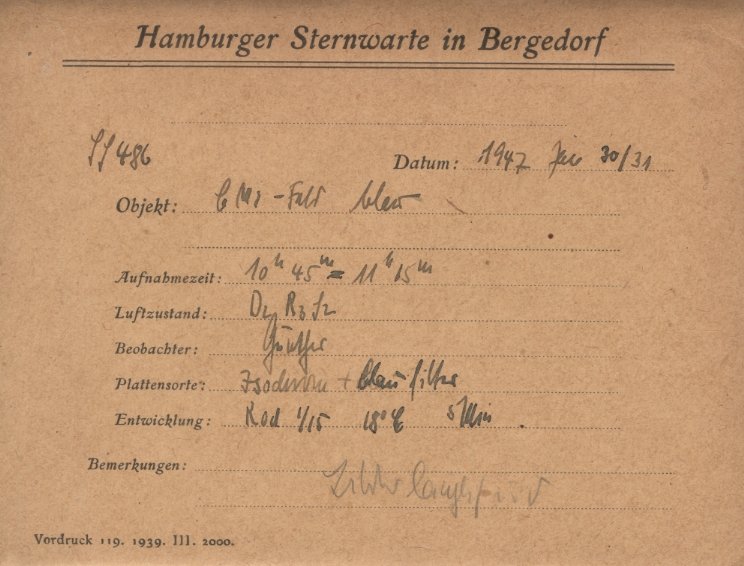 Hamburger Sternwarte in Bergedorf
SS 486
Datum: 1947 30/31
Objekt: -Feld blau
Aufnahmezeit: 10h 45m = 11h 15m
Luftzustand: D2 R3 S2
Beobachter: Günther
Plattensorte: Isochrom + blau filter
Entwicklung: Rod 1/15 18°C 5 Min.
Bemerkungen:
Vordruck 119. 1939. III. 2000.